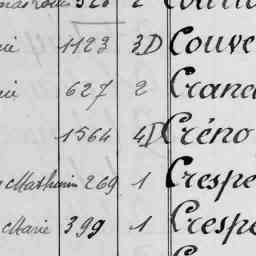 1123 3D Couve
627 2 Crane
1564 4D Créno
Mathurin 269 1 Crespe
Marie 399 1 Crespe